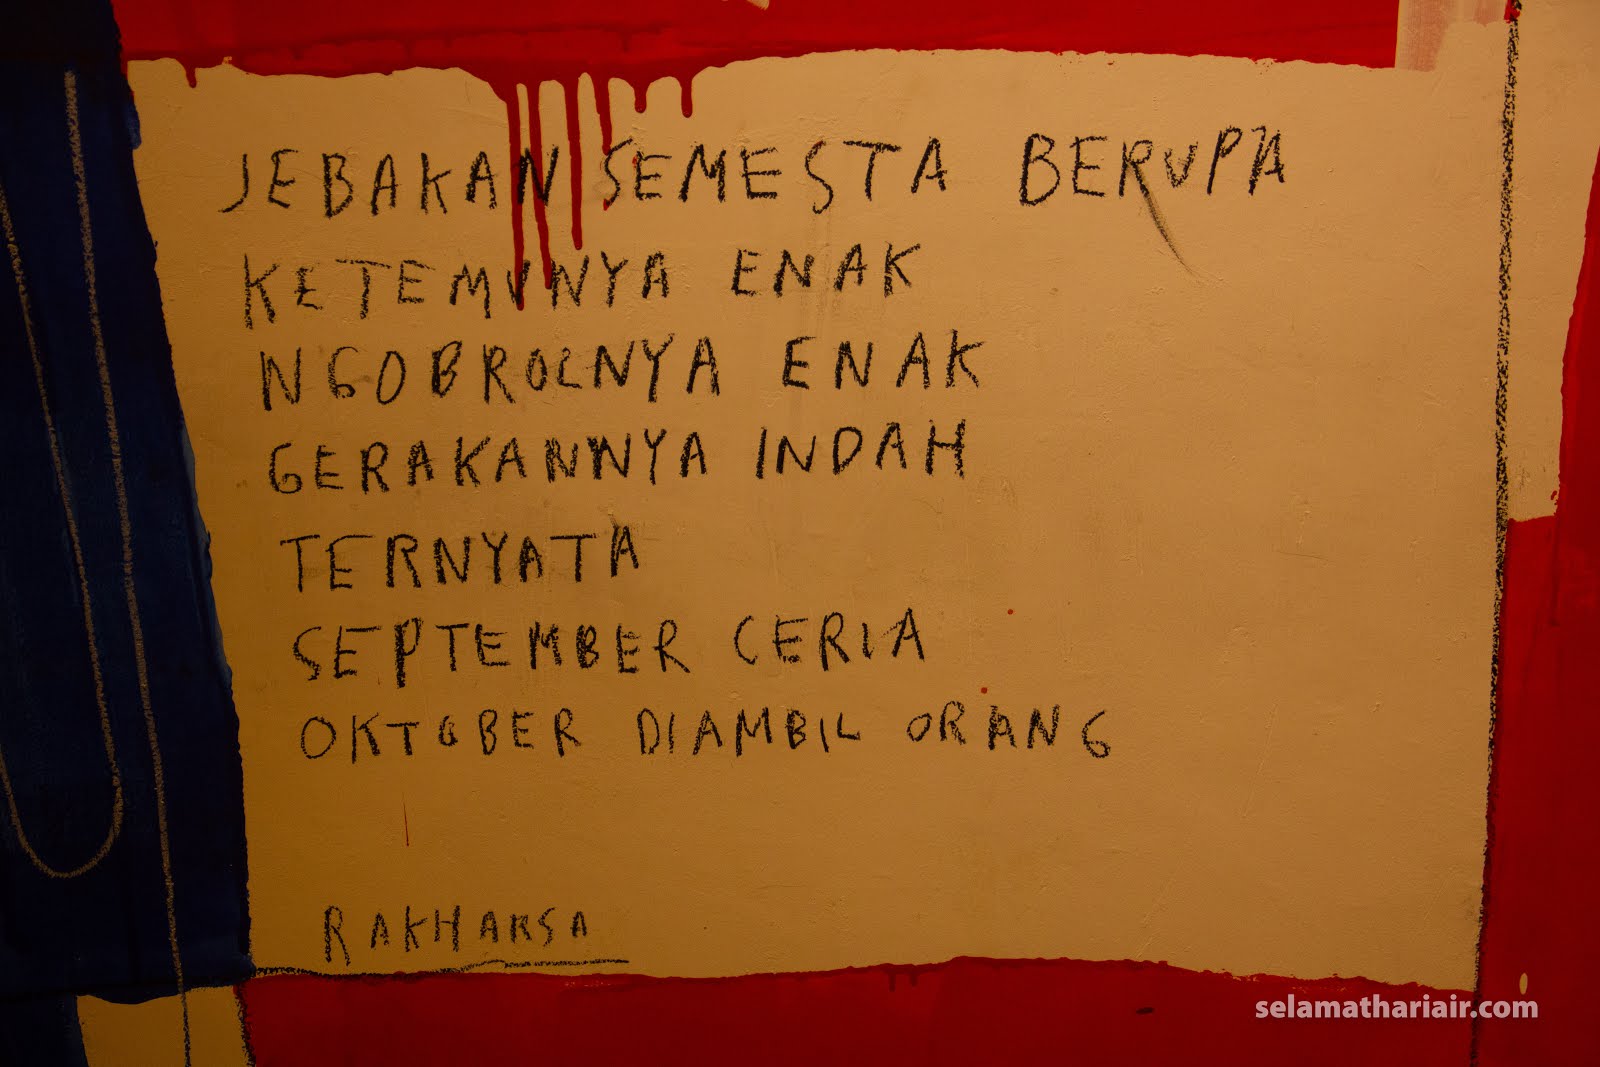 JEBAKAN SEMESTA BERUPA
KETEMUNYA ENAK
NGOBROLNYA ENAK
GERAKANNYA INDAH
TERNYATA
SEPTEMBER CERIA
OKTOBER DIAMBIL ORANG
RAKHARSA
selamathariair.com